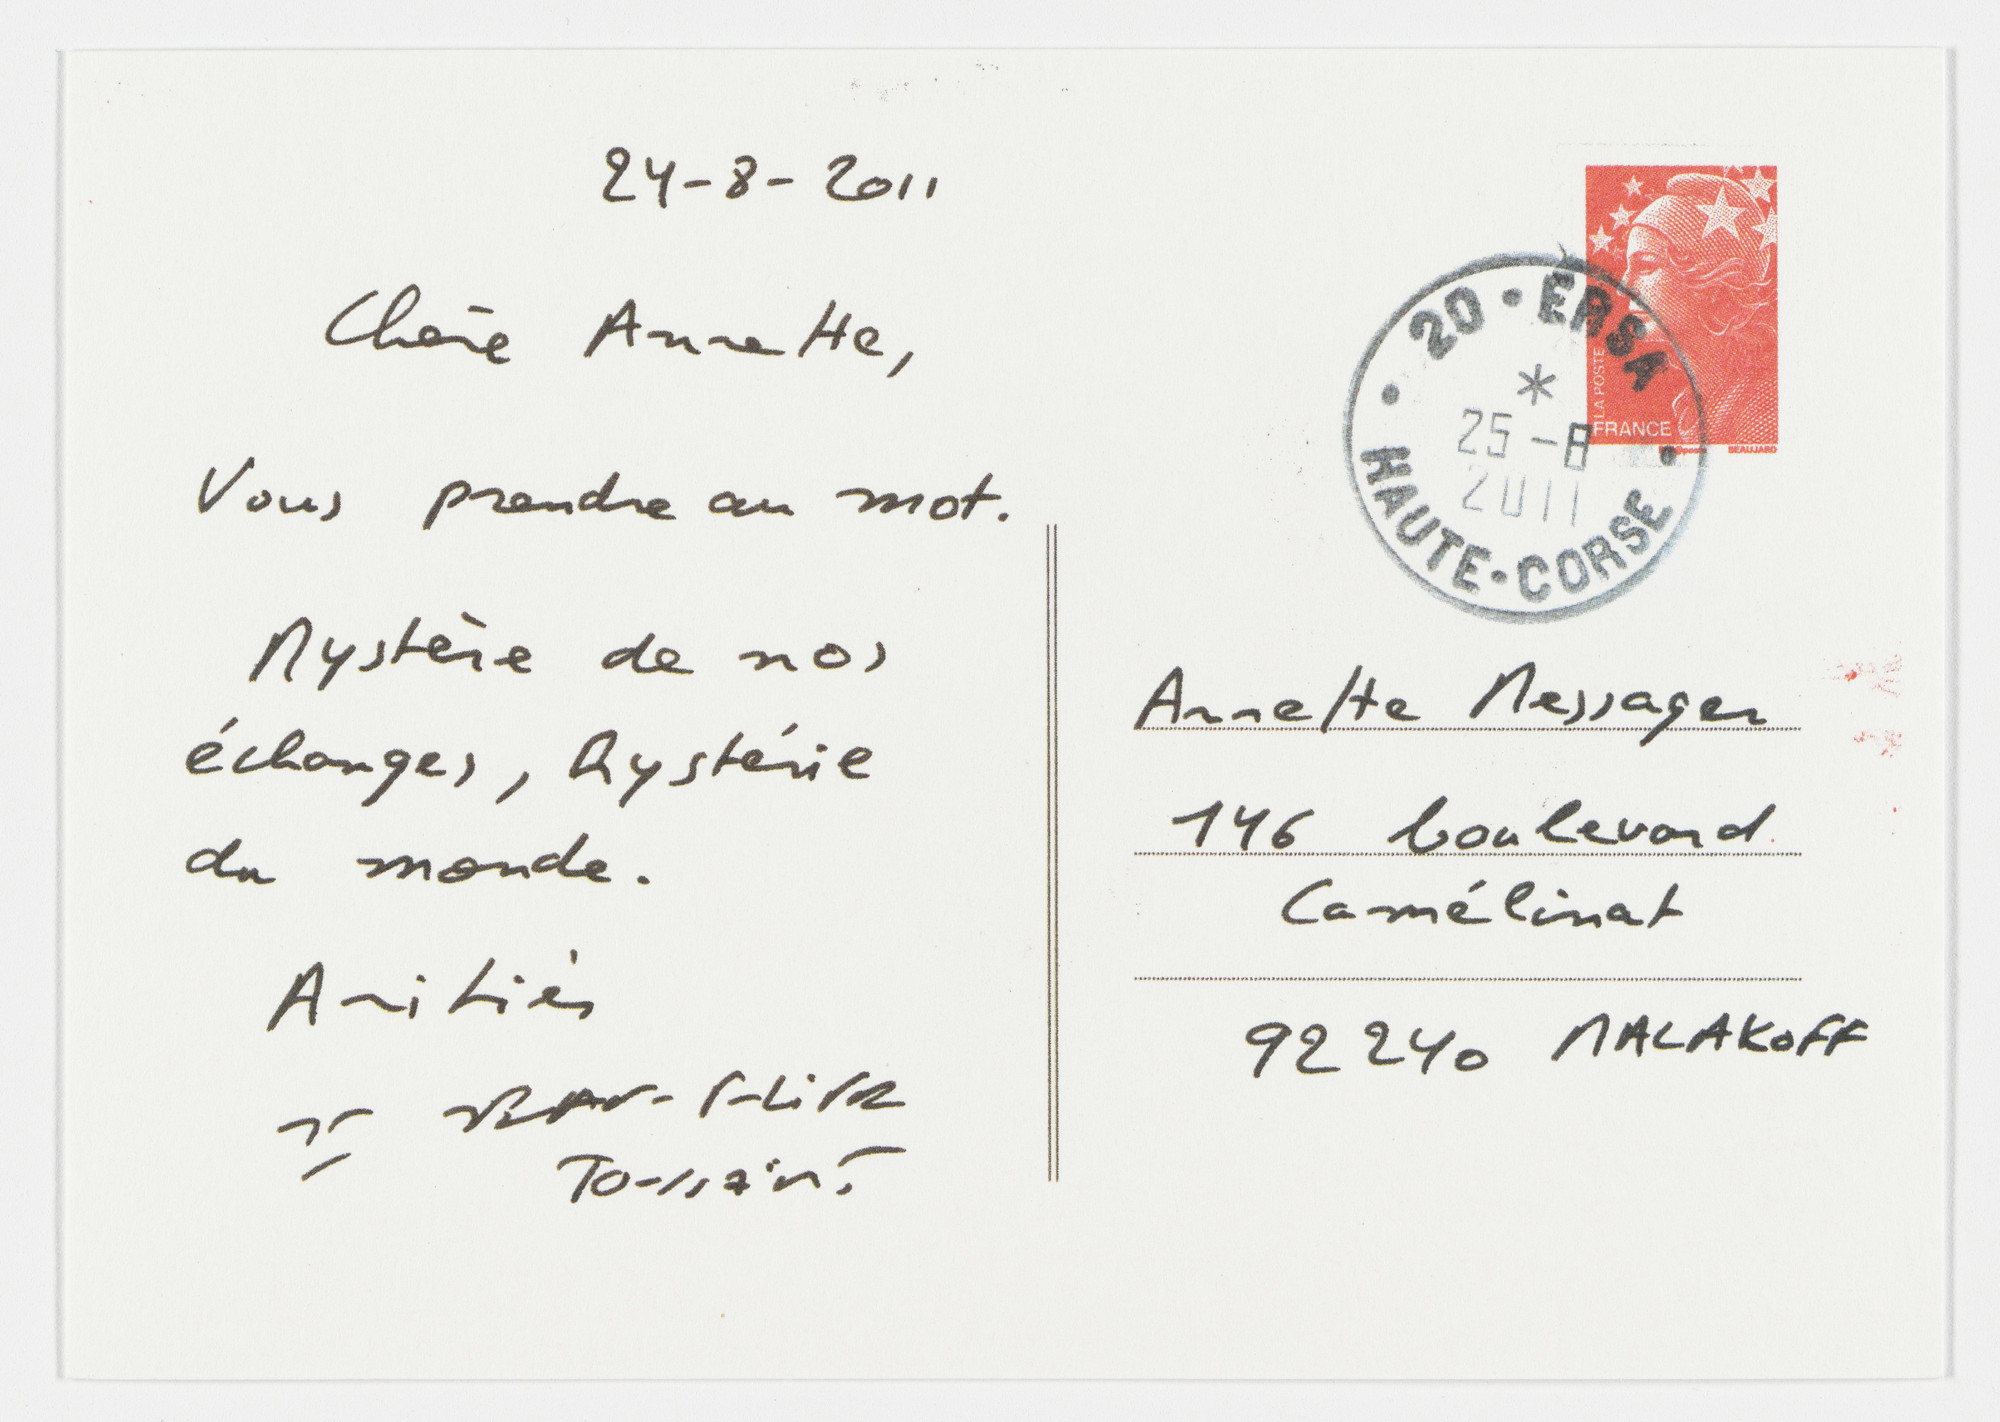 24-8-2011
Chère Annette,
Vous prendre au mot.
Mystère de nos
échanges, Mystérie
du monde.
Amitiés
Toussaint
20 • ERSA
*
25-8
2011
HAUTE-CORSE
LA POSTE
FRANCE
BEAUJARD
Annette Messager
146 boulevard
Camélinat
92240 MALAKOFF